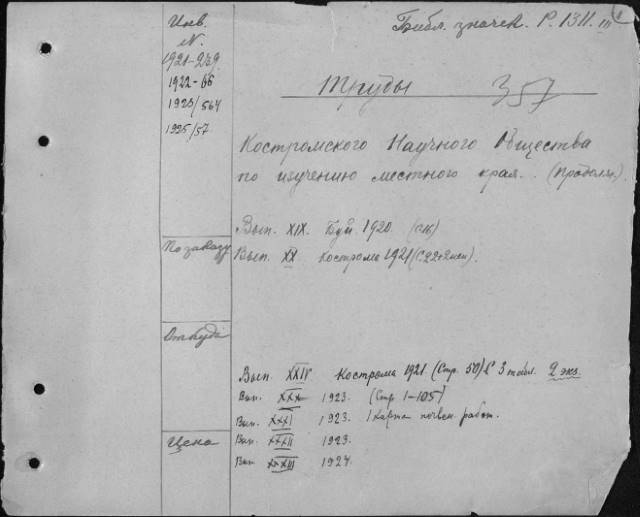 Инв.
N.
1921-249
1922-66
1923/564
1925/57
Библ. значек. Р. 1311. III
Труды 357
Костромского Научного Общества
по изучению местного края. (продолж.)
Вып. XIX. Буй 1920 (с16)
По заказу
Вып. XX Кострома 1921 (с22+2
Откуда
Вып. XXIV Кострома 1921. (Стр. 50) 3 табл. 2 экз.
Вып. XXX 1923. (Стр 1-105)
Вып. XXXI 1923. 1 карта почвен. работ.
Цена
Вып. XXXII 1923.
Вып XXXIII 1924.